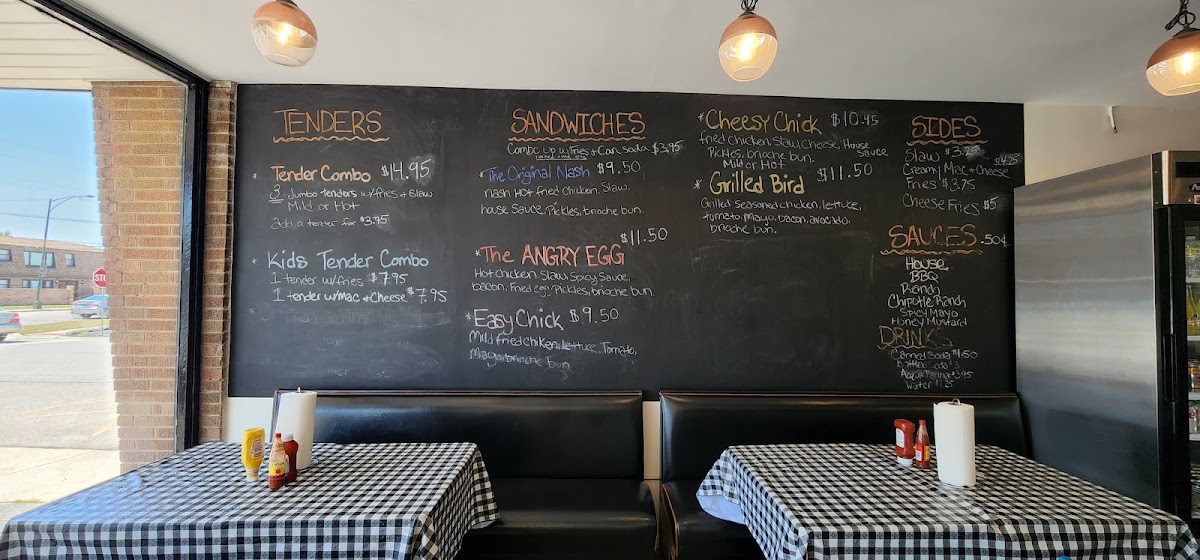 TENDERS
Tender Combo $14.95
3 Jumbo tenders w/fries + Slaw
Mild or Hot
add a tender for $3.75
* Kids Tender Combo
1 tender w/fries $7.95
1 tender w/Mac + Cheese $7.95
SANDWICHES
Combo up w/Fries + Can Soda $3.95
*The Original Nash $9.50
nash Hot fried chicken, Slaw,
house Sauce, Pickles, brioche bun.
$11.50
*The ANGRY EGG
Hot Chicken, Slaw, Spicy Sauce,
bacon, Fried egg, Pickles, brioche bun.
*Easy Chick $9.50
Mild fried chiken, lettuce, Tomato,
Mayo, brioche bun
*Cheesy Chick $10.45
fried chicken, Slaw, Cheese, House Sauce
Pickles, brioche bun.
Mild or Hot
*Grilled Bird $11.50
Grilled Seasoned chicken, lettuce,
tomato, mayo, bacon, avocado,
brioche bun.
SIDES
Slaw
Creamy Mac + Cheese $4.25
Fries $3.75
Cheese Fries $5
SAUCES .50¢
House
BBQ
Ranch
Chipotle Ranch
Spicy Mayo
Honey Mustard
DRINKS
Canned Soda $1.50
Bottled Soda $3
Acqua Panna $3.95
Water $1.25
STOP